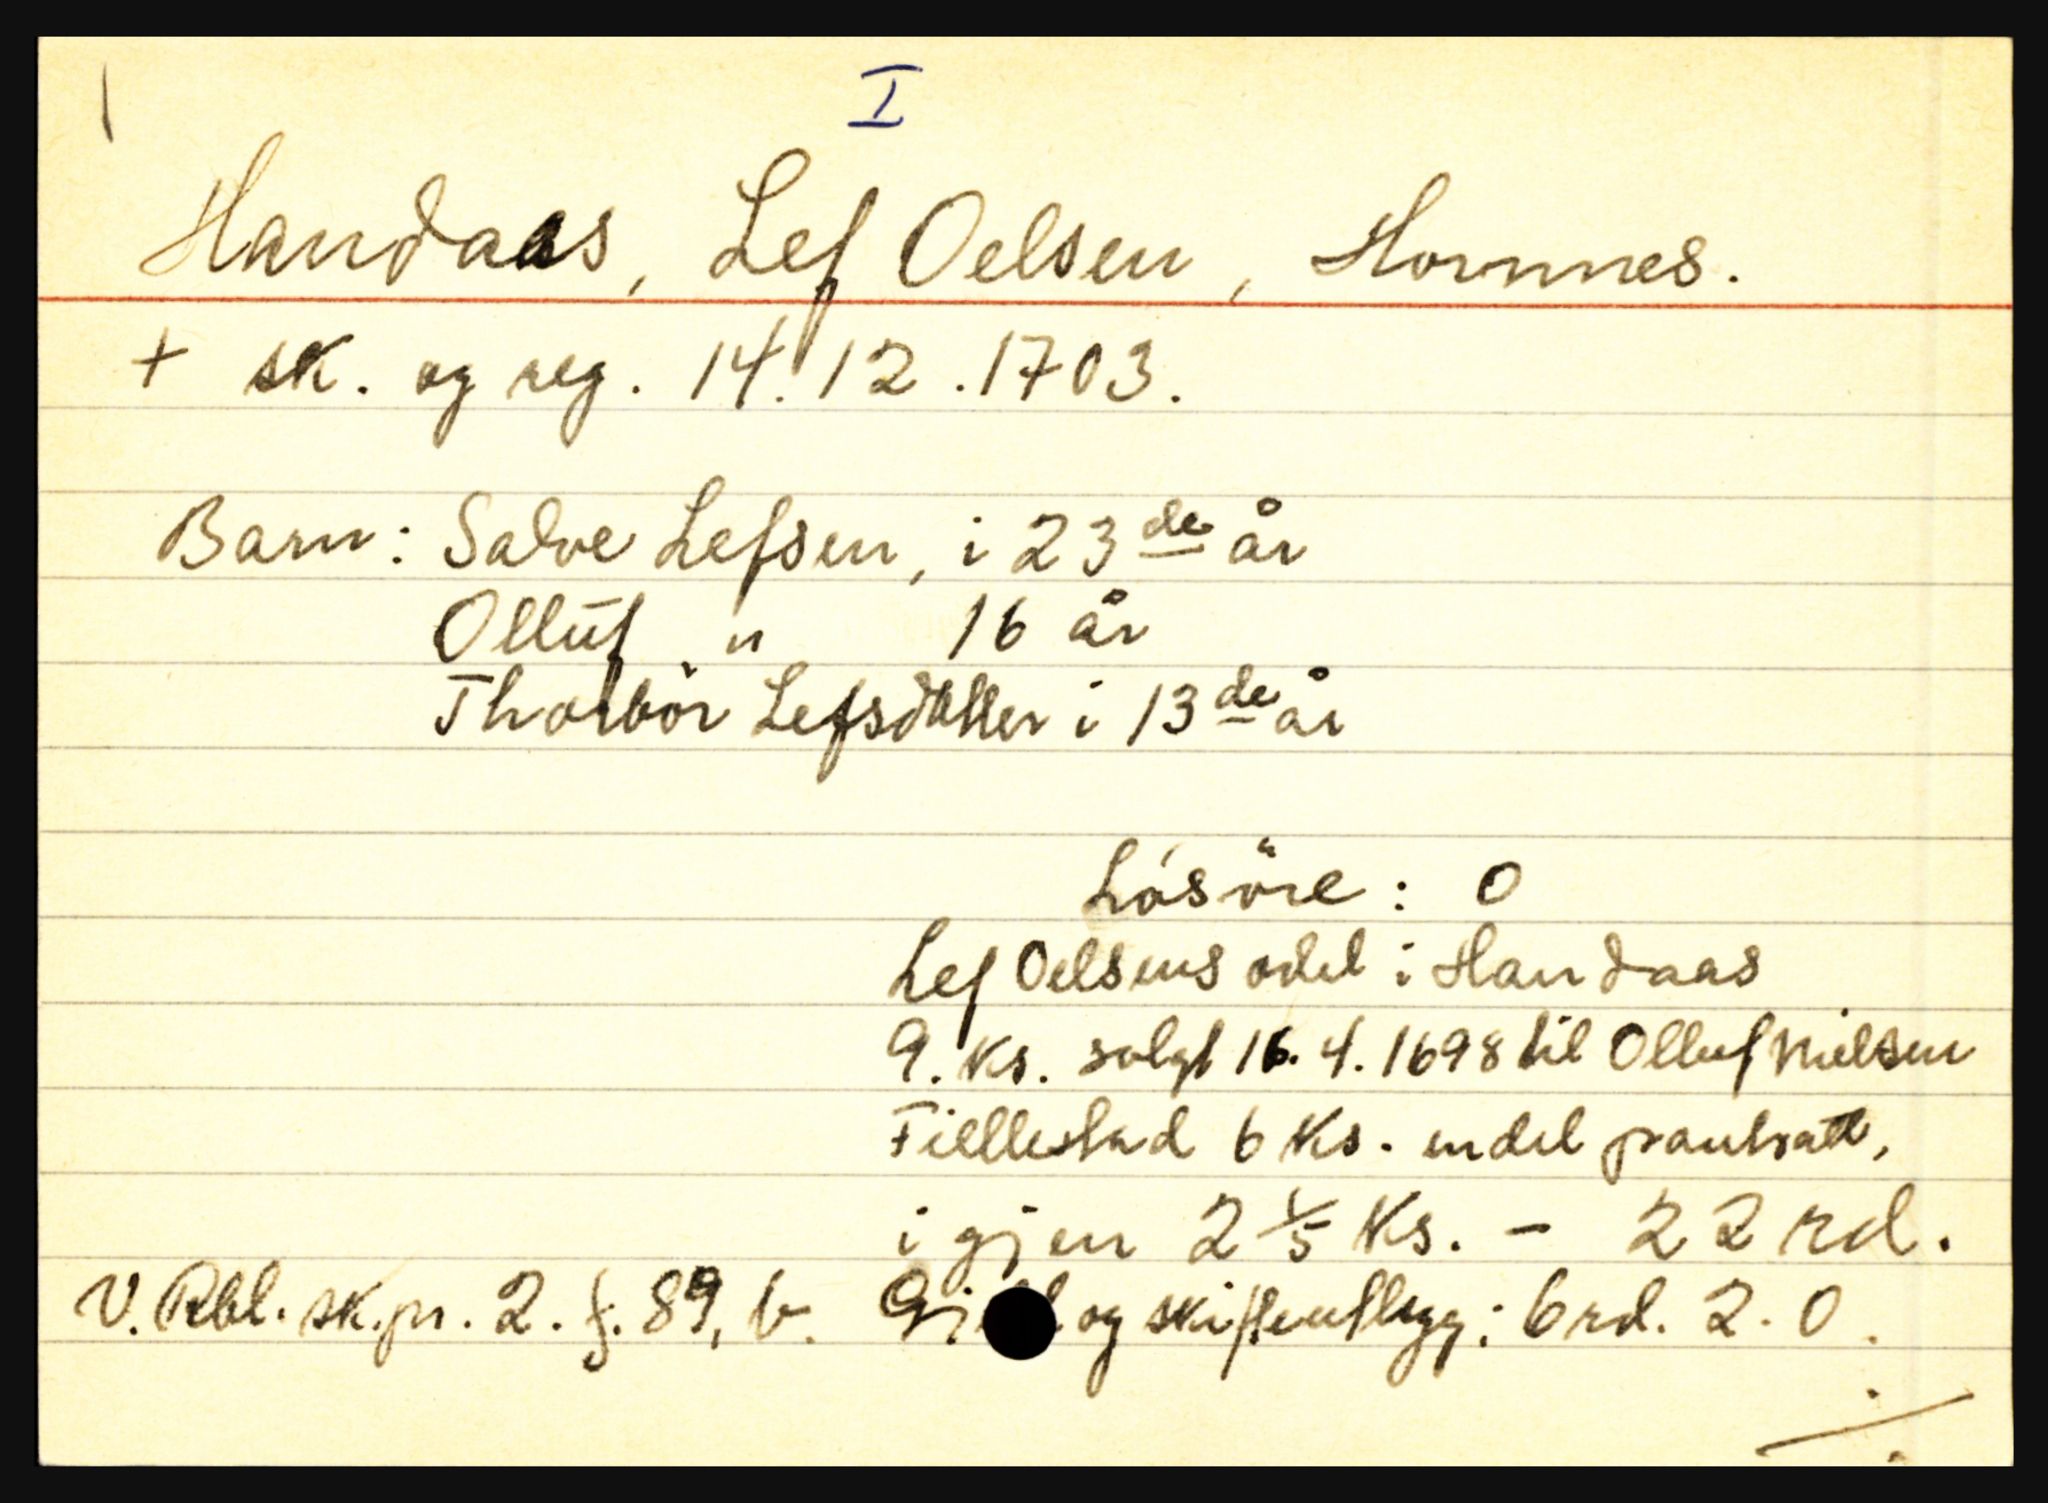 I
Handaas, Lef Oelsen, Hornnes.
+ sk. og reg. 14.12.1703.
Barn: Salve Lefsen, i 23de år
Olluf " 16 år
Thorbör Lefsdatter i 13de år
Lösöre: 0
Lef Oelsens odel i Handaas
9. Ks. solgt 16.4.1698 til Olluf Nielsen
Fiellestad 6 Ks. endel pantsatt,
igjen 2 1/5 Ks. - 22 rd.
V. Rbl. sk.pr. 2. f. 89, b. og skifteutlegg: 6 rd. 2. 0.